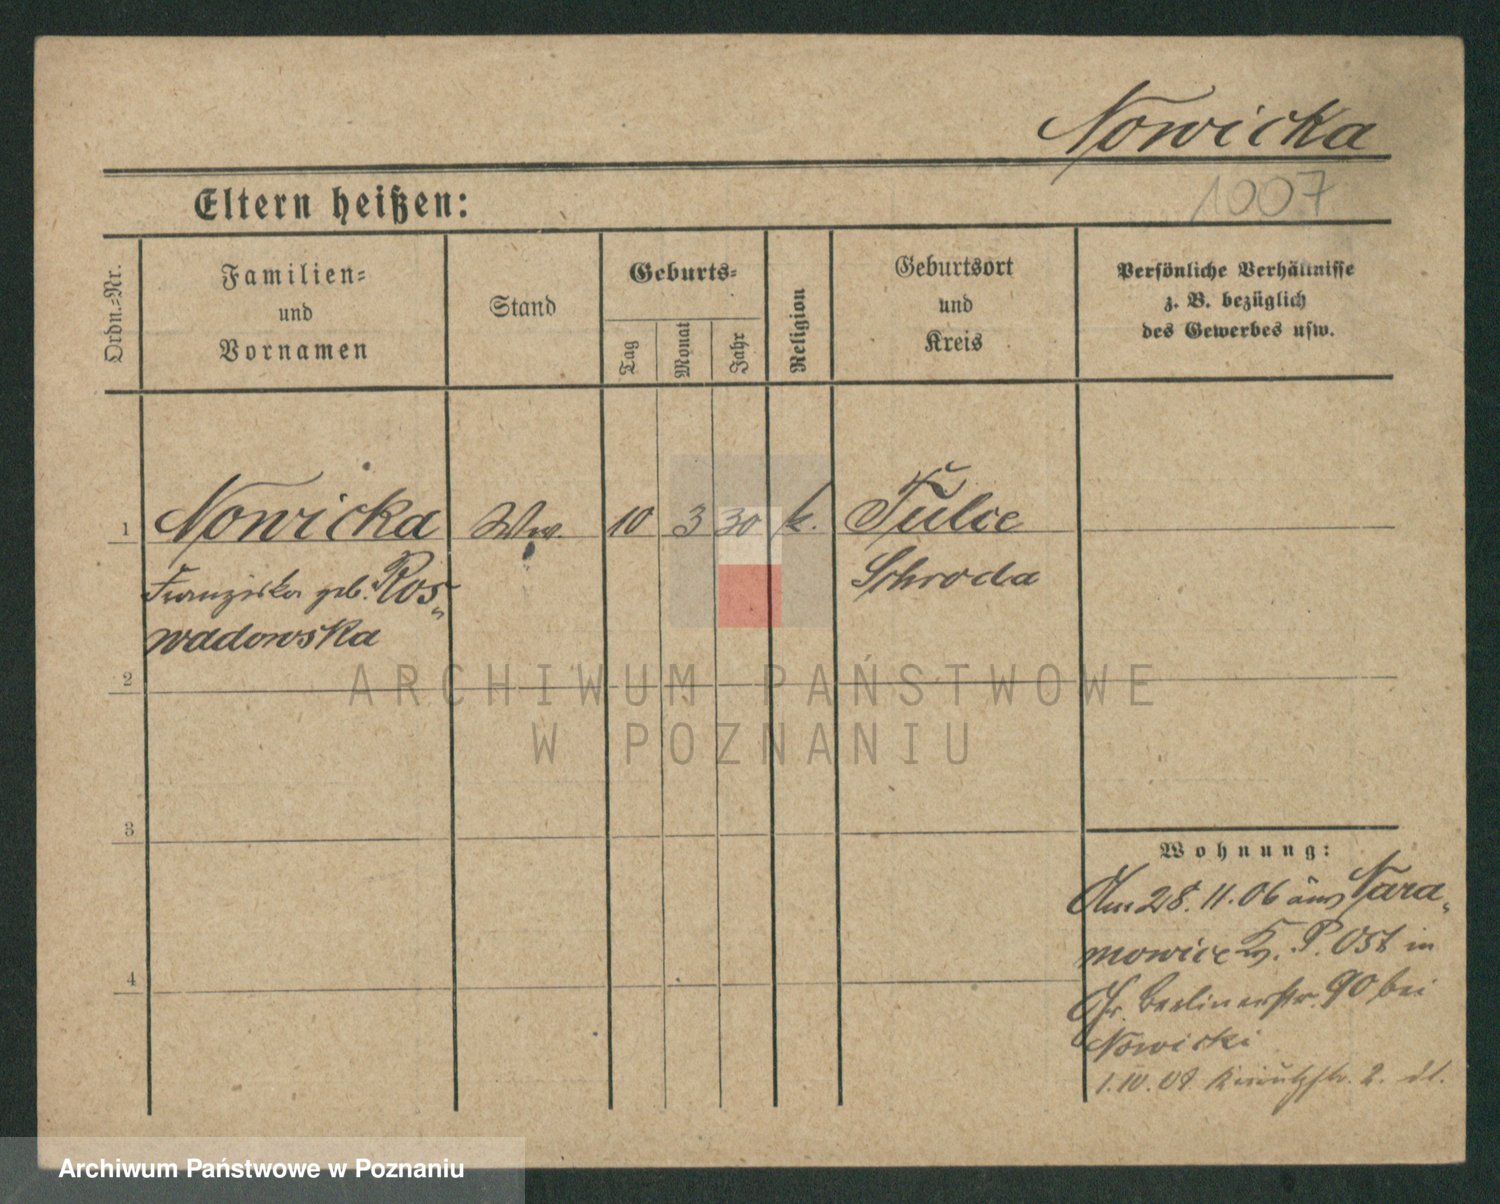 Nowicka
1007
Eltern heißen:
Ordn.-Nr.
Familien-
und
Vornamen
Stand
Geburts-
Tag
Monat
Jahr
Religion
Geburtsort
und
Kreis
Persönliche Verhältnisse
z. B. bezüglich
des Gewerbes usw.
1 Nowicka Ww. 10 3 30 k. Tulce
Franziska geb. Ros- Schroda
wadowska
2
ARCHIWUM PAŃSTWOWE
W POZNANIU
3
Wohnung:
Am 28.11.06 aus Nara-
mowice K. P. Ost in
Gr. Berlinerstr. 90 bei
4
Nowicki
Archiwum Państwowe w Poznaniu